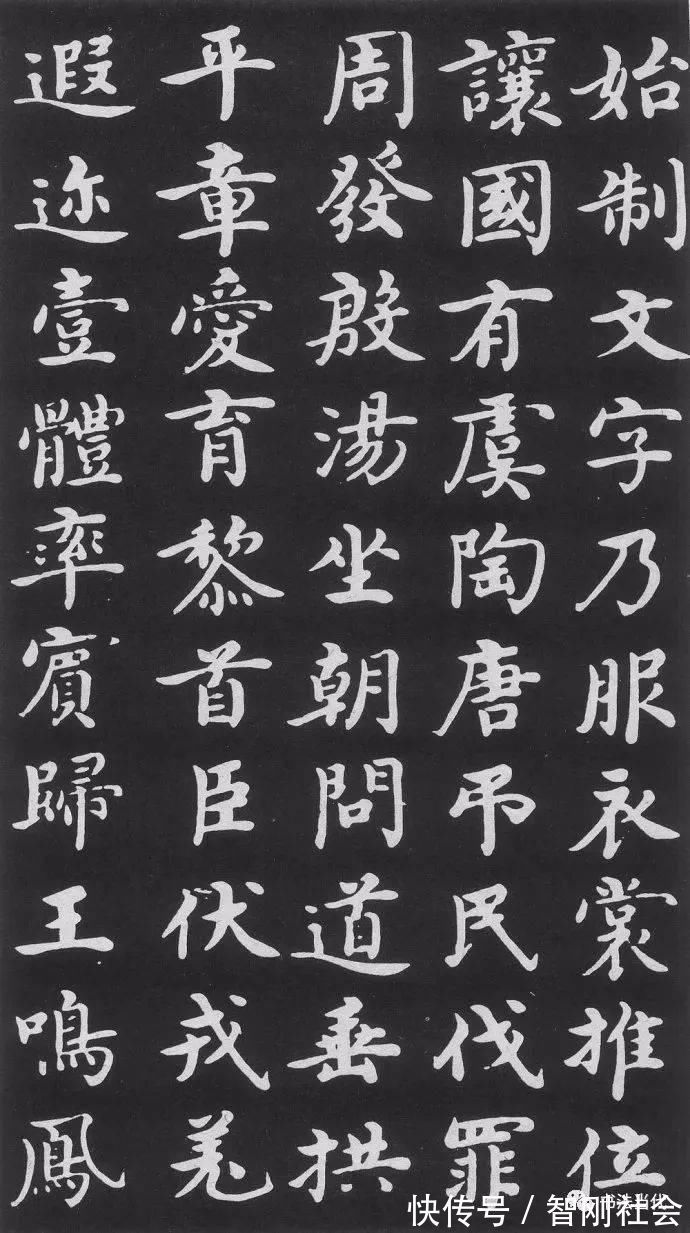 始制文字乃服衣裳推位
讓國有虞陶唐吊民伐罪
周發殷湯坐朝問道垂拱
平章愛育黎首臣伏戎羌
遐迩壹體率賓歸王鳴鳳
书法当代
快传号/智刚社会